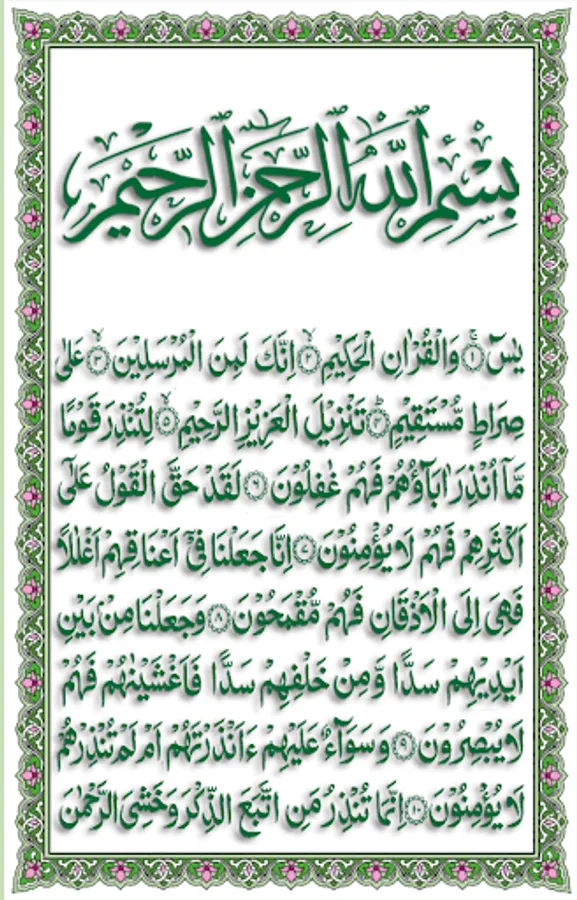 بِسْمِ اللّٰهِ الرَّحْمٰنِ الرَّحِيْمِ
يٰسٓ ۝١ وَالْقُرْاٰنِ الْحَكِيْمِ ۝٢ اِنَّكَ لَمِنَ الْمُرْسَلِيْنَ ۝٣ عَلٰى
صِرَاطٍ مُّسْتَقِيْمٍ ۝٤ تَنْزِيْلَ الْعَزِيْزِ الرَّحِيْمِ ۝٥ لِتُنْذِرَ قَوْمًا
مَّآ اُنْذِرَ اٰبَآؤُهُمْ فَهُمْ غٰفِلُوْنَ ۝٦ لَقَدْ حَقَّ الْقَوْلُ عَلٰٓى
اَكْثَرِهِمْ فَهُمْ لَا يُؤْمِنُوْنَ ۝٧ اِنَّا جَعَلْنَا فِيْٓ اَعْنَاقِهِمْ اَغْلٰلًا
فَهِىَ اِلَى الْاَذْقَانِ فَهُمْ مُّقْمَحُوْنَ ۝٨ وَجَعَلْنَا مِنْۢ بَيْنِ
اَيْدِيْهِمْ سَدًّا وَّمِنْ خَلْفِهِمْ سَدًّا فَاَغْشَيْنٰهُمْ فَهُمْ
لَا يُبْصِرُوْنَ ۝٩ وَسَوَآءٌ عَلَيْهِمْ ءَاَنْذَرْتَهُمْ اَمْ لَمْ تُنْذِرْهُمْ
لَا يُؤْمِنُوْنَ ۝١٠ اِنَّمَا تُنْذِرُ مَنِ اتَّبَعَ الذِّكْرَ وَخَشِىَ الرَّحْمٰنَ